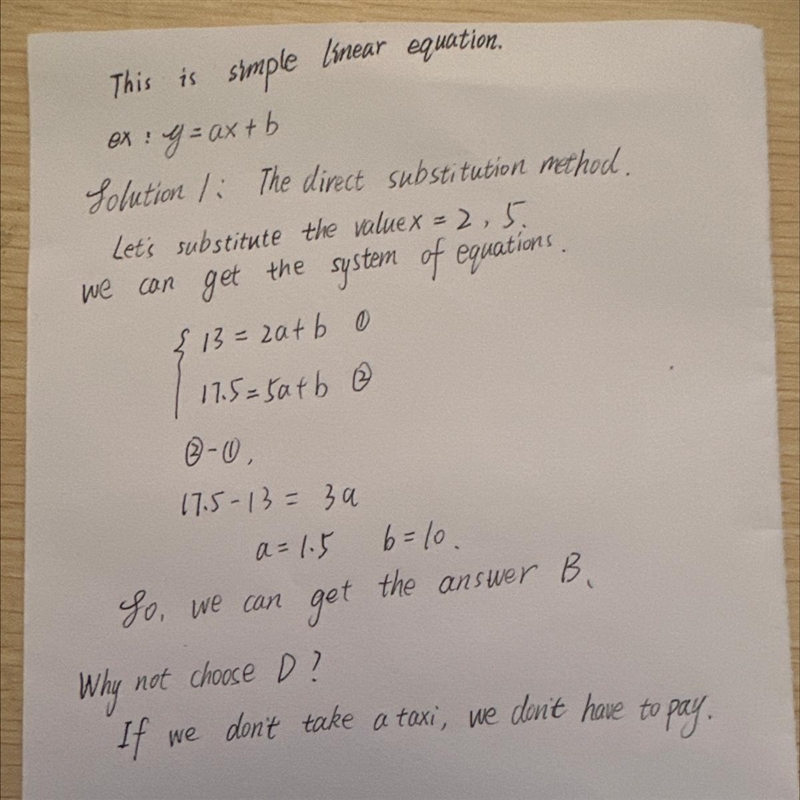 This is simple linear equation.
ex : y = ax + b
Solution 1: The direct substitution method.
Let's substitute the value x = 2, 5.
we can get the system of equations.
{ 13 = 2a + b ①
17.5 = 5a + b ②
② - ①,
17.5 - 13 = 3a
a = 1.5 b = 10.
So, we can get the answer B.
Why not choose D?
If we don't take a taxi, we don't have to pay.